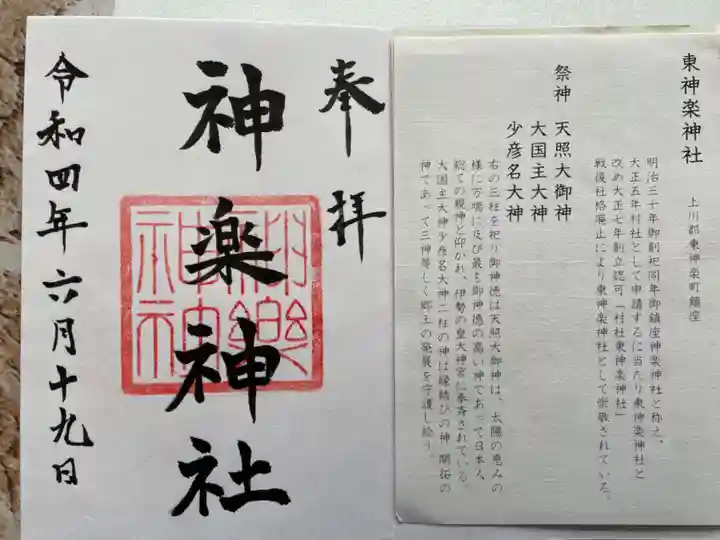 奉拝
神楽神社
令和四年六月十九日
東神楽神社
上川郡東神楽町鎮座
明治三十年御創祀同年御鎮座神楽神社と称之、
大正五年村社として申請するに当たり東神楽神社と
改め大正七年創立認可「村社東神楽神社」
戦後社格廃止により東神楽神社として崇敬されている。
祭神 天照大御神
大国主大神
少彦名大神
右の三柱を祀り御神徳は天照大御神は、太陽の恵みの
様に万物に及び最も御神徳の高い神であって日本人
総ての親神と仰がれ、伊勢の皇大神宮に奉斉されている。
大国主大神少彦名大神二柱の神は縁結びの神 開拓の
神であって三神等しく郷土の発展を守護し給う。